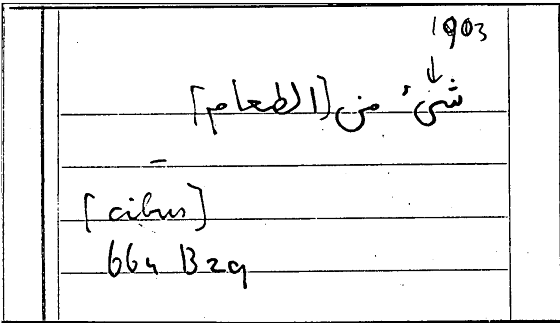 1903
↓
شئ من [الطعام]
–
[cibus]
664 B29